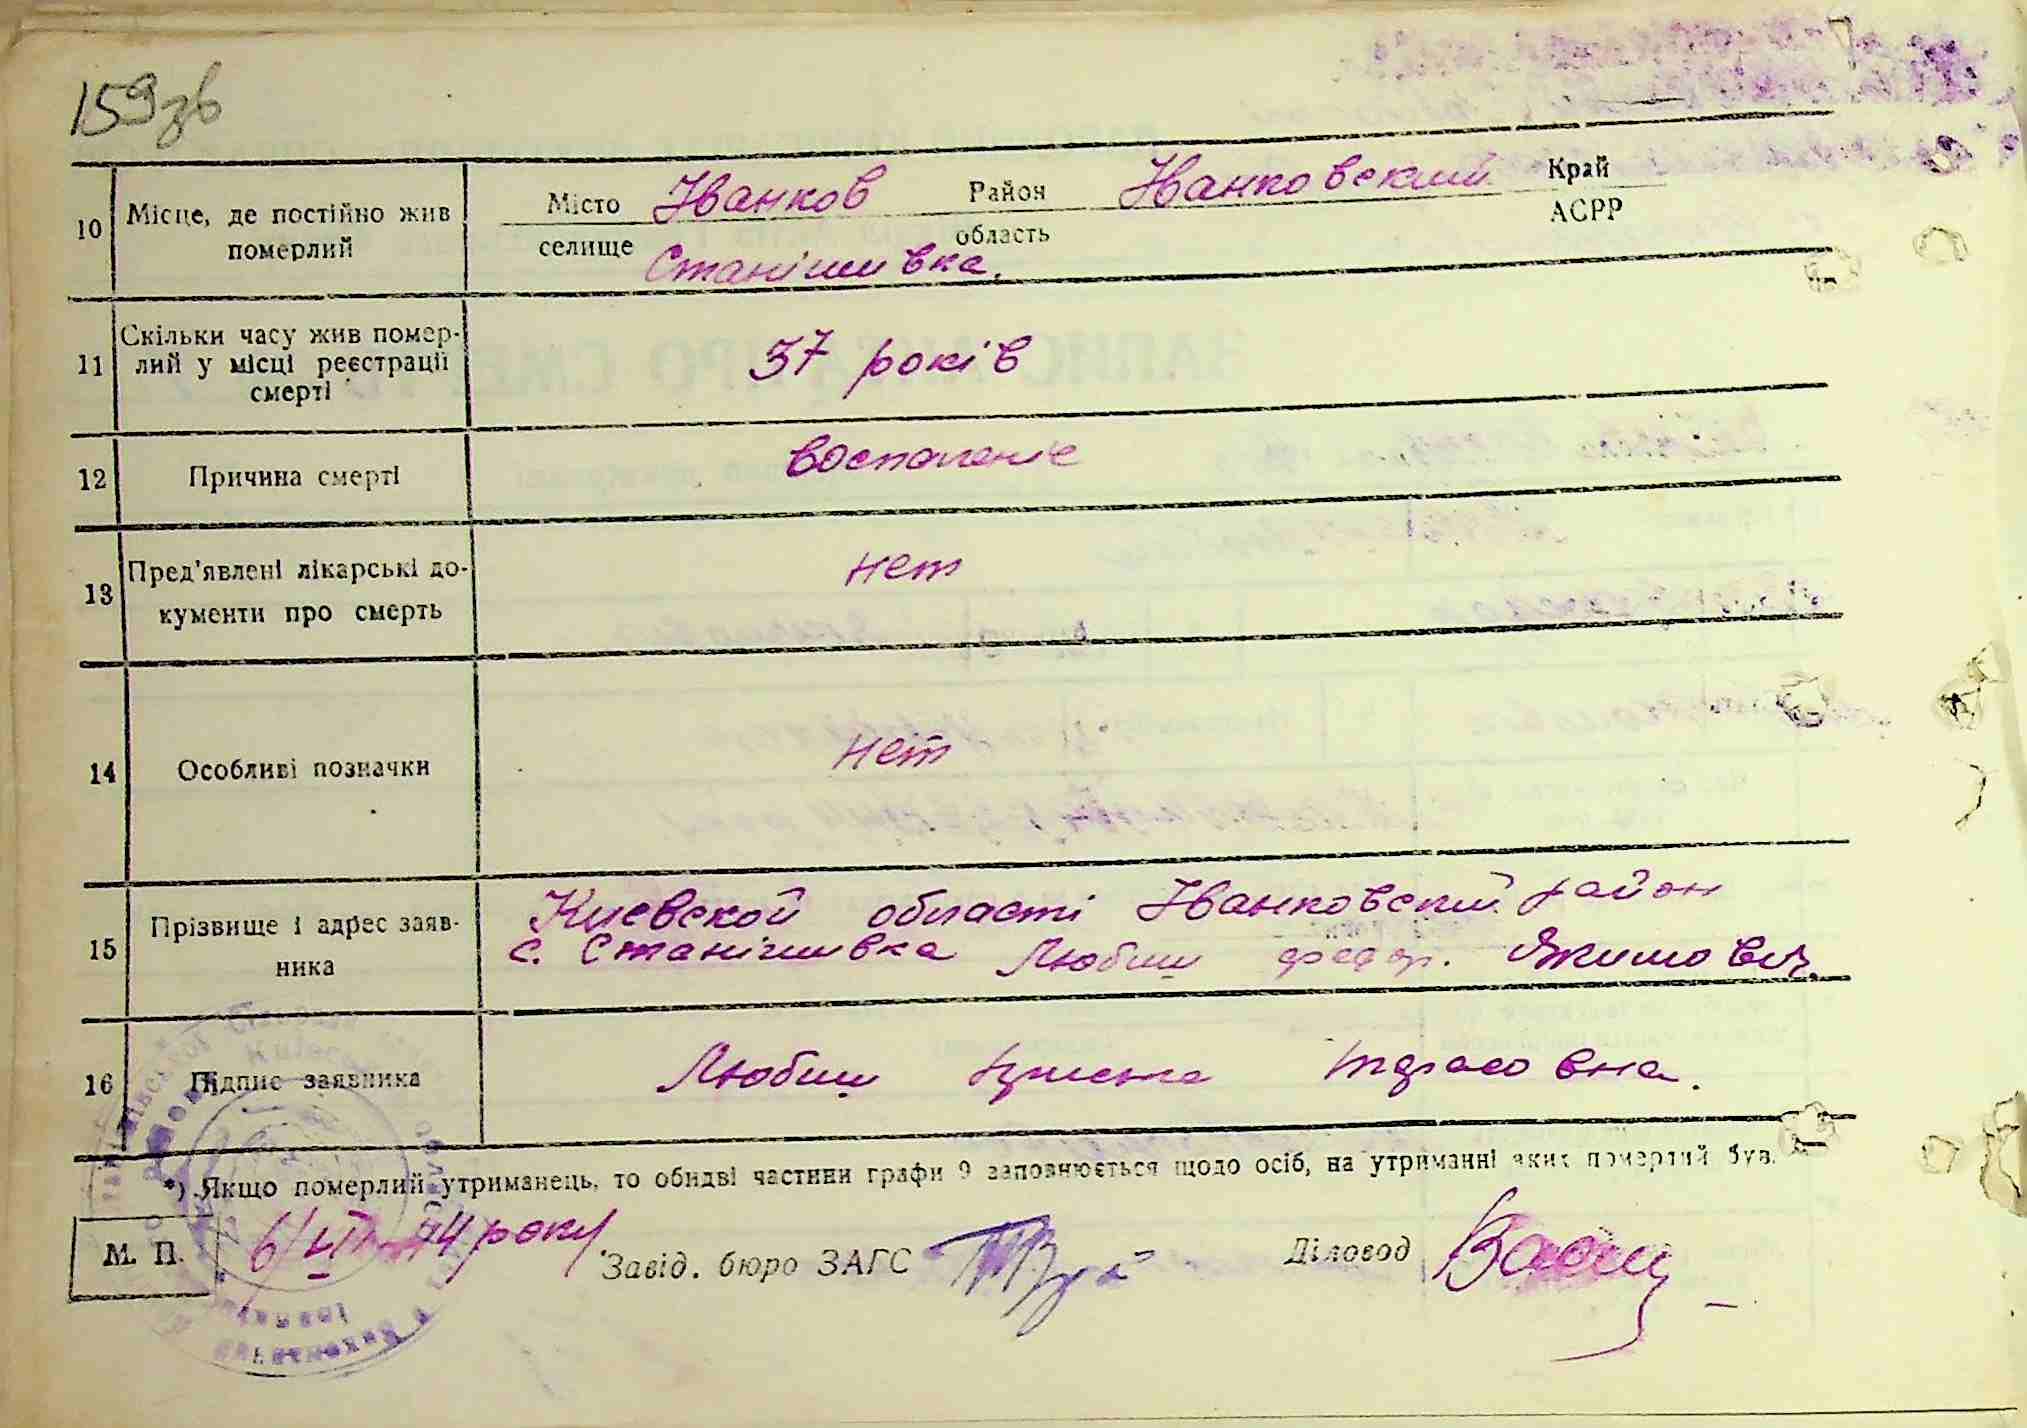 159зв
10 Місце, де постійно жив померлий Місто Іванков Район Іванковский Край
селище Станішивка. область АСРР
11 Скільки часу жив помер-
лий у місці реєстрації
смерті 37 років
12 Причина смерті восполеніе
13 Пред'явлені лікарські до-
кументи про смерть нет
14 Особливі позначки нет
15 Прізвище і адрес заяв-
ника Киевской області Іванковский район
с. Станішивка Любиш федор. Якимович.
16 Підпис заявника Любиш тарасовна.
*) Якщо померлий утриманець, то обидві частини графи 9 заповнюється щодо осіб, на утриманні яких померлий був.
М. П. 6/VII 44 року Завід. бюро ЗАГС Діловод